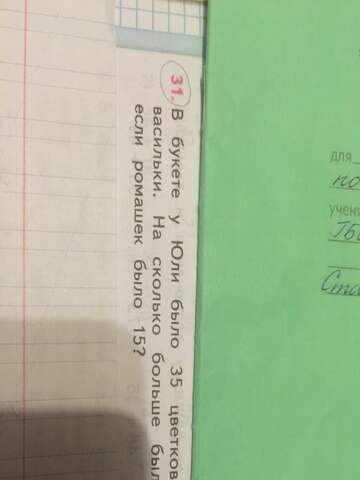 31. В букете у Юли было 35 цветков
васильки. На сколько больше был
если ромашек было 15?
для
по
учени